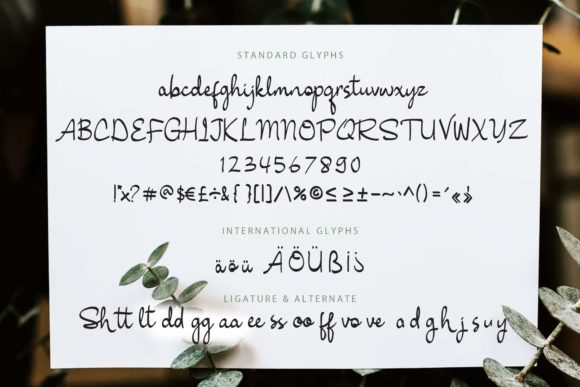 STANDARD GLYPHS
abcdefghijklmnopqrstuvwxyz
ABCDEFGHIJKLMNOPQRSTUVWXYZ
1234567890
!"x?#@$€£÷&{}[|]/\%©≤≥±–~·^()=´«»¦
INTERNATIONAL GLYPHS
äöü ÄÖÜßis
LIGATURE & ALTERNATE
Sh tt lt dd gg aa ee ss oo ff vo ve a d g h j s u y